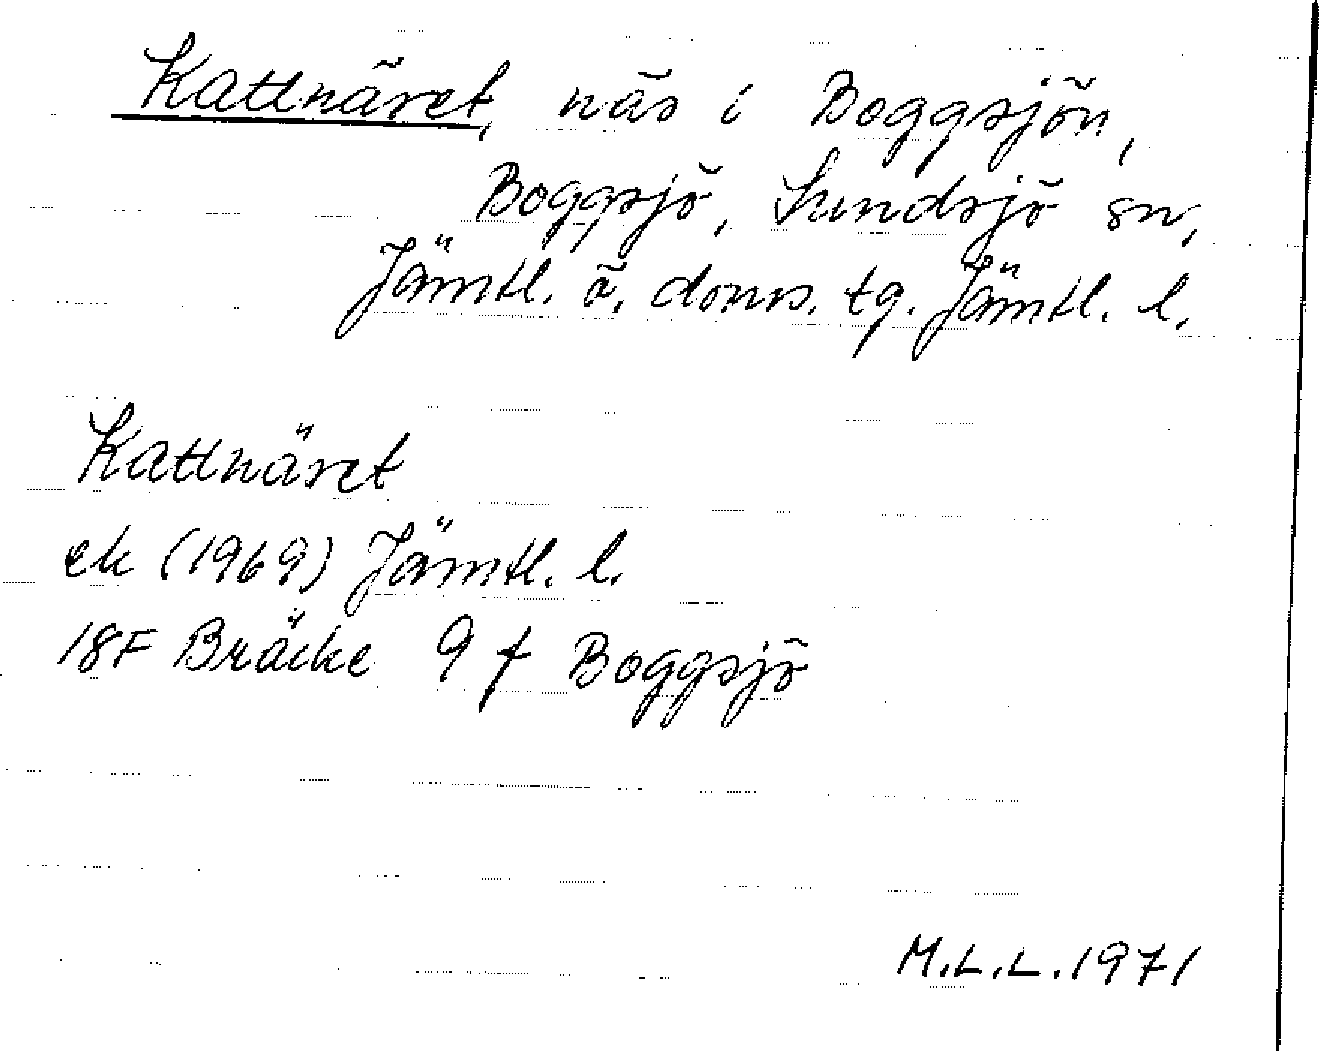 Kattnäset, näs i Boggsjön,
Boggsjö, Sundsjö sn,
Jämtl. ö. doms. tg. Jämtl. l.
Kattnäset
ek (1969) Jämtl. l.
18F Bräcke 9 f Boggsjö
M.L.L. 1971